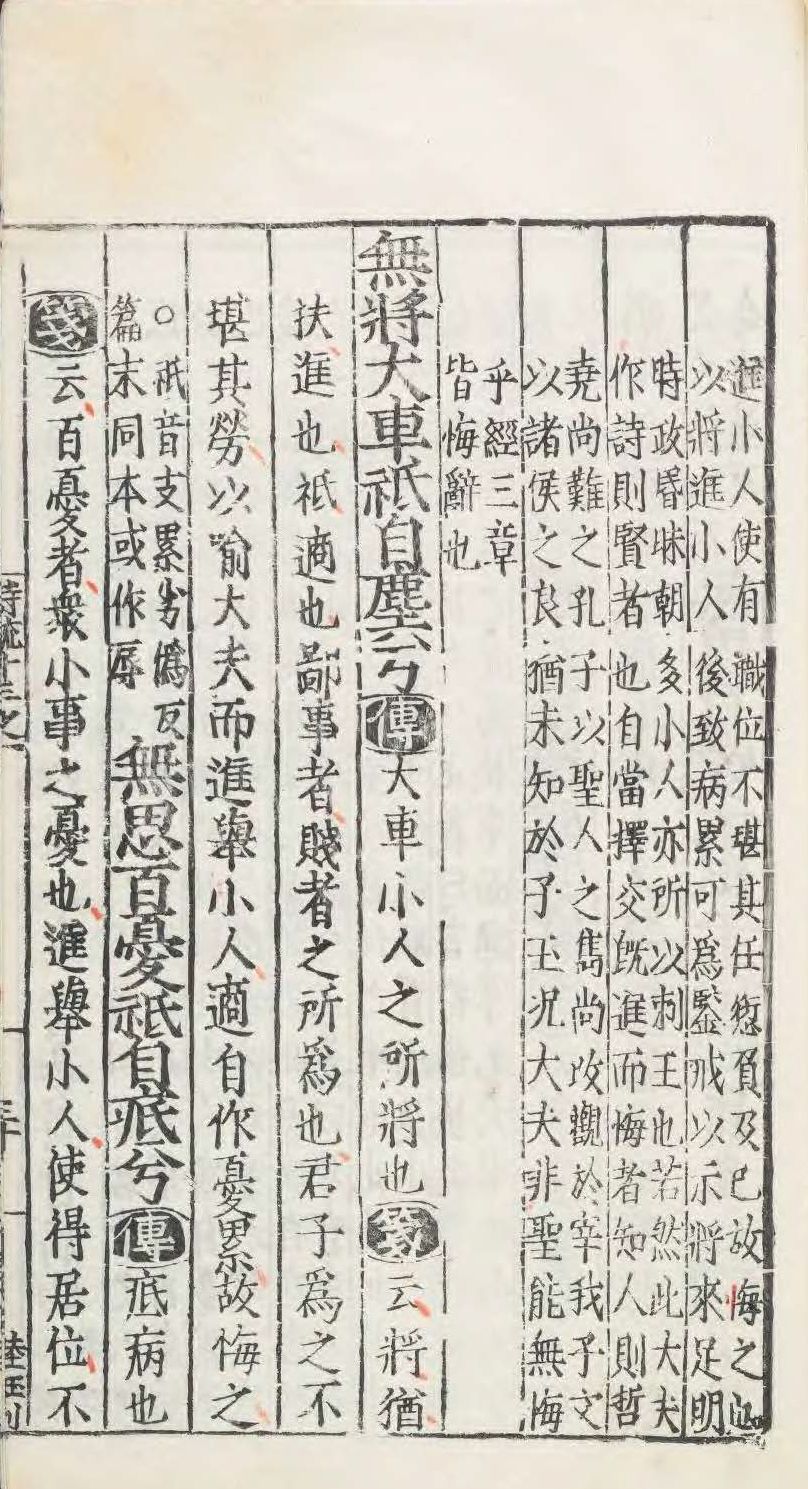 進小人使有職位不堪其任愆負及已故悔之也
以將進小人後致病累可爲鑒戒以示將來足明
時政昬昧朝多小人亦所以刺王也若然此大夫
作詩則賢者也自當擇交旣進而悔者知人則哲
堯尚難之孔子以聖人之雋尚改觀於宰我子文
以諸侯之良猶未知於子玉况大夫非聖能無悔
乎經三章
皆悔辭也
無將大車祇自塵兮傳大車小人之所將也箋云將猶
扶進也祇適也鄙事者賤者之所爲也君子爲之不
堪其勞以喻大夫而進舉小人適自作憂累故悔之
○祇音支累劣僞反
篇末同本或作辱
無思百憂祇自疧兮傳疧病也
箋云百憂者衆小事之憂也進舉小人使得居位不